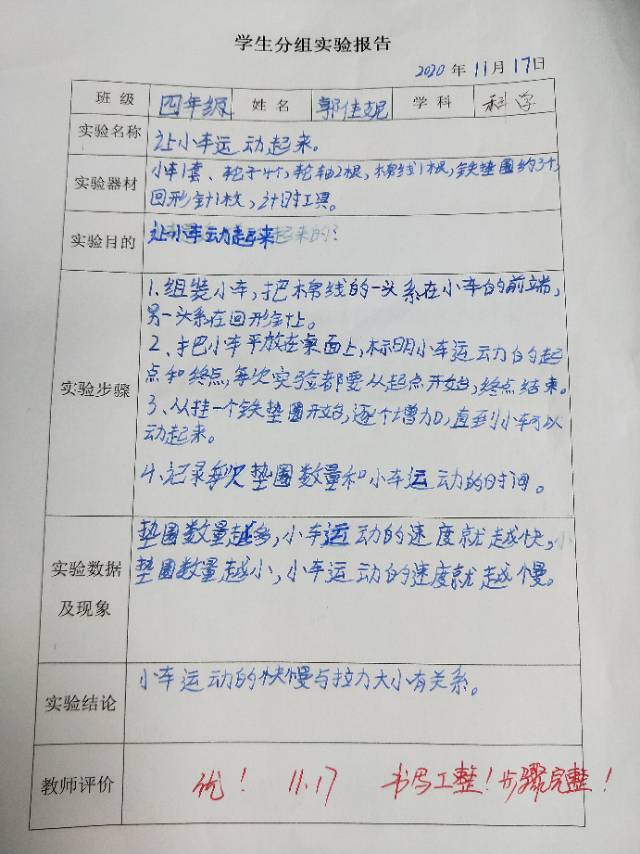 学生分组实验报告
2020 年 11 月 17 日
班 级 四年级 姓 名 郭佳妮 学 科 科学
实验名称 让小车运动起来。
实验器材 小车1套、轮子4个,轮轴2根,棉线1根,铁垫圈约3个,
回形针1枚,计时工具。
实验目的 让小车动起来起来的?
实验步骤
1.组装小车,把棉线的一头系在小车的前端,
另一头系在回形针上。
2、把小车平放在桌面上,标明小车运动的起
点和终点,每次实验都要从起点开始,终点结束。
3、从挂一个铁垫圈开始,逐个增加,直到小车可以
动起来。
4.记录每次垫圈数量和小车运动的时间。
实验数据
及现象
垫圈数量越多,小车运动的速度就越快,
垫圈数量越小,小车运动的速度就越慢。
实验结论 小车运动的快慢与拉力大小有关系。
教师评价 优! 11.17 书写工整!步骤完整!